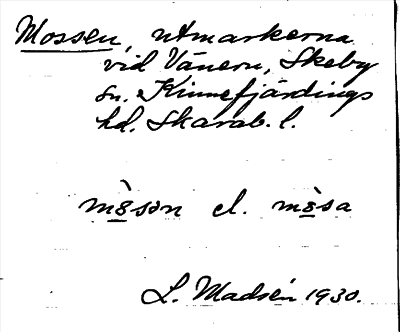 Mossen, utmarkerna
vid Vänern, Skeby
sn. Kinnefjärdings
hd. Skarab. l.
mòsən el. mòsa
L. Madsén 1930.